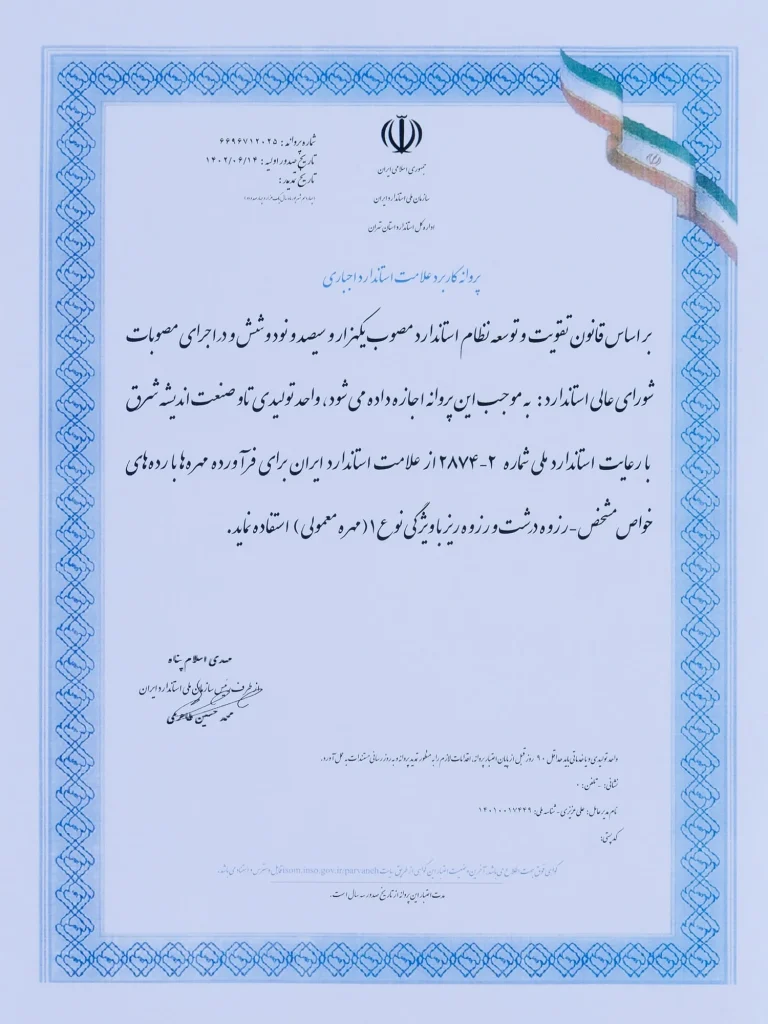 جمهوری اسلامی ایران
سازمان ملی استاندارد ایران
اداره کل استاندارد استان تهران
شماره پروانه : ۶۶۹۶۷۱۲۰۲۵
تاریخ صدور اولیه : ۱۴۰۲/۰۶/۱۴
تاریخ تمدید :
پروانه کاربرد علامت استاندارد اجباری
بر اساس قانون تقویت و توسعه نظام استاندارد مصوب یکهزار و سیصد و نود و شش و در اجرای مصوبات
شورای عالی استاندارد : به موجب این پروانه اجازه داده می شود، واحد تولیدی تاو صنعت اندیشه شرق
با رعایت استاندارد ملی شماره ۲-۲۸۷۴ از علامت استاندارد ایران برای فرآورده مهره ها با رده های
خواص مشخص-رزوه درشت و رزوه ریز با ویژگی نوع ۱ (مهره معمولی) استفاده نماید.
مهدی اسلام پناه
از طرف رئیس سازمان ملی استاندارد ایران
محمد حسین
واحد تولیدی و یا خدماتی باید حداقل ۹۰ روز قبل از پایان اعتبار پروانه، اقدامات لازم را به منظور تمدید پروانه و به روز رسانی مستندات به عمل آورد.
نشانی: - تلفن: ۰
نام مدیر عامل: علی عزیزی - شناسه ملی: ۱۴۰۱۰۰۱۷۴۴۹
کد پستی:
مدت اعتبار این پروانه از تاریخ صدور سه سال است.